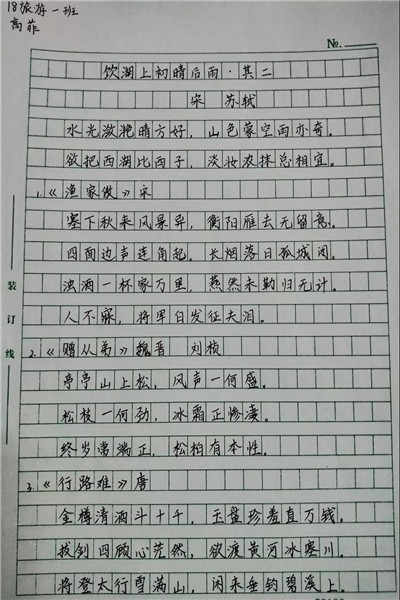 18旅游一班
高菲
№.
饮湖上初晴后雨·其二
宋 苏轼
水光潋滟晴方好，山色蒙空雨亦奇。
欲把西湖比西子，淡妆浓抹总相宜。
1.《渔家傲》宋
塞下秋来风景异，衡阳雁去无留意。
四面边声连角起。长烟落日孤城闭。
浊酒一杯家万里，燕然未勒归无计。
人不寐，将军白发征夫泪。
2.《赠从弟》魏晋 刘桢
亭亭山上松，风声一何盛。
松枝一何劲，冰霜正惨凄。
终岁常端正，松柏有本性。
3.《行路难》唐
金樽清酒斗十千，玉盘珍羞直万钱。
拔剑四顾心茫然，欲渡黄河冰塞川。
将登太行雪满山，闲来垂钓碧溪上。
装
订
线